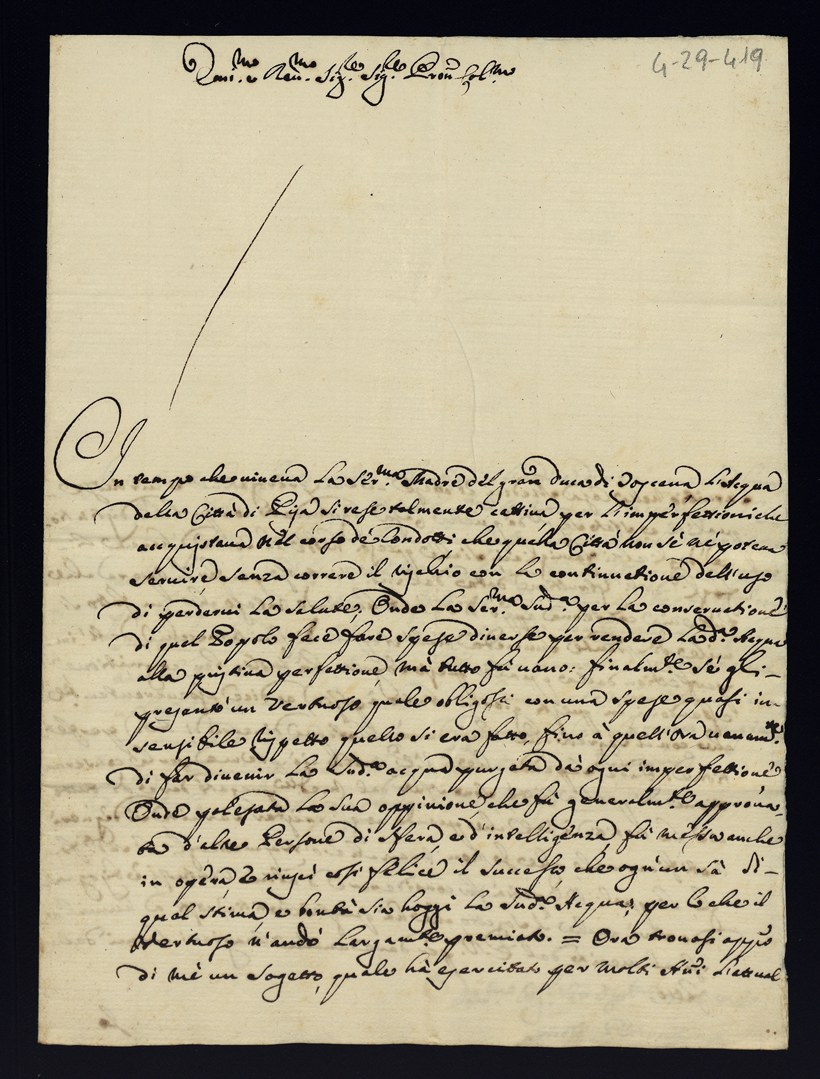 Emi.mo e Reu.mo Sig.re Sig.re Pron Col.mo
4-29-419
In tempo che uiueua La Ser.ma Madre del gran duca di Toscana L'Acqua
della Città di Pisa si rese talmente cattiua per L'imperfettioni che
acquistaua nel corso de Condotti che quella Città non se ne poteua
seruire senza correre il rischio con la continuatione dell'uso
di perderui La salute, Onde La Ser.ma Sud.a per La conseruatione
di quel Popolo fece fare spese diuerse per rendere La d.a Acqua
alla pristina perfettione, mà tutto fù uano: finalm.te sé gli-
presentò un Vertuoso quale obligossi con una spesa quasi in-
sensibile rispetto quello si era fatto, fino à quell'ora uanam.te
di far diuenir La Sud.a acqua purgata dà ogni imperfettione
Onde palesata La sua oppinione, che fù generalm.te approua-
ta d'altre Persone di sfera, e d'intelligenza, fù messo anche
in opera, e riuscì così felice il successo, che ogn'un sà di-
qual stima, e bontà sia hoggi La Sud.a Acqua; per lo che il
Vertuoso n'andò Largam.te premiato. = Ora trouasi appo
di mè un Sogetto, quale hà esercitato per molti Anni L'attual